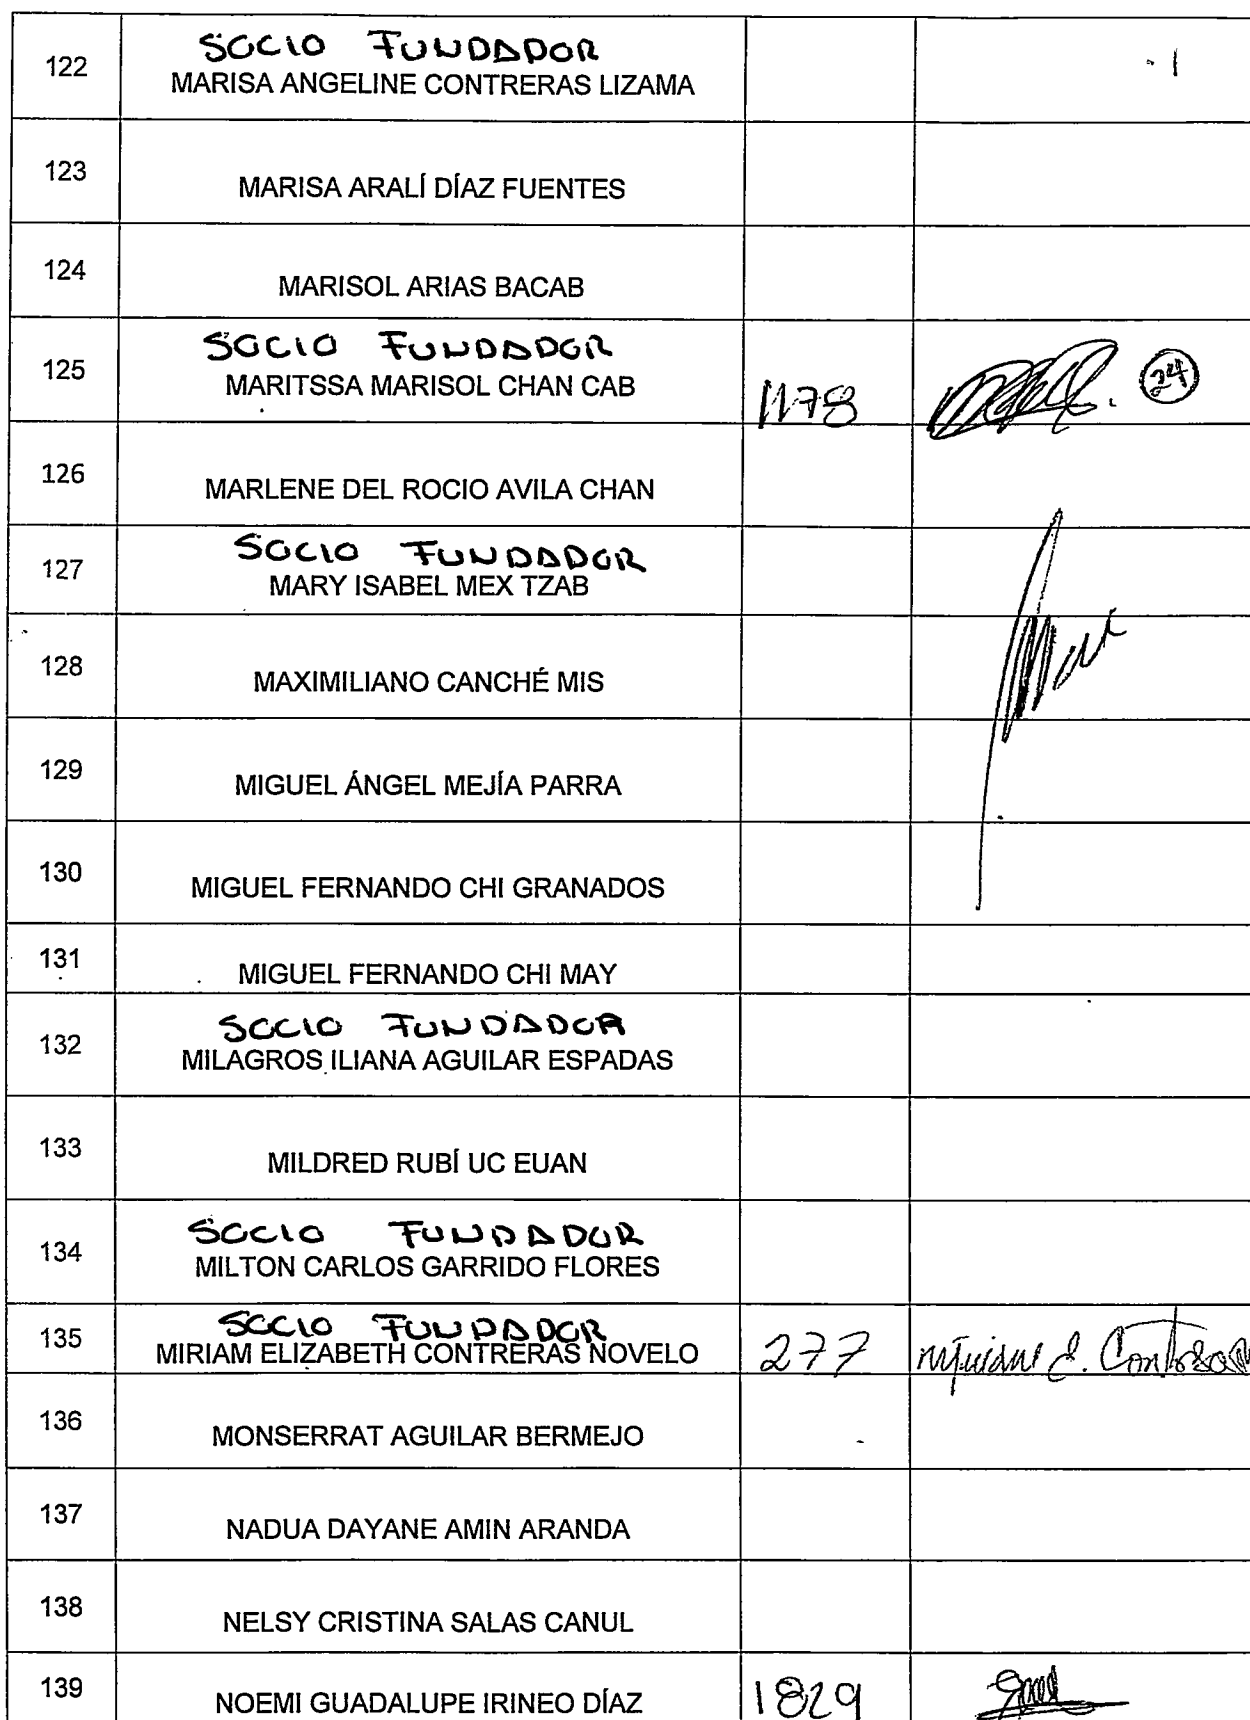 122
SOCIO FUNDADOR
MARISA ANGELINE CONTRERAS LIZAMA
123
MARISA ARALÍ DÍAZ FUENTES
124
MARISOL ARIAS BACAB
125
SOCIO FUNDADOR
MARITSSA MARISOL CHAN CAB
1178
24
126
MARLENE DEL ROCIO AVILA CHAN
127
SOCIO FUNDADOR
MARY ISABEL MEX TZAB
128
MAXIMILIANO CANCHÉ MIS
129
MIGUEL ÁNGEL MEJÍA PARRA
130
MIGUEL FERNANDO CHI GRANADOS
131
MIGUEL FERNANDO CHI MAY
132
SOCIO FUNDADOR
MILAGROS ILIANA AGUILAR ESPADAS
133
MILDRED RUBÍ UC EUAN
134
SOCIO FUNDADOR
MILTON CARLOS GARRIDO FLORES
135
SOCIO FUNDADOR
MIRIAM ELIZABETH CONTRERAS NOVELO
277
136
MONSERRAT AGUILAR BERMEJO
137
NADUA DAYANE AMIN ARANDA
138
NELSY CRISTINA SALAS CANUL
139
NOEMI GUADALUPE IRINEO DÍAZ
1829